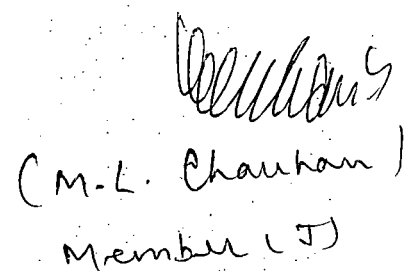 (M.L. Chauhan)
Member (J)